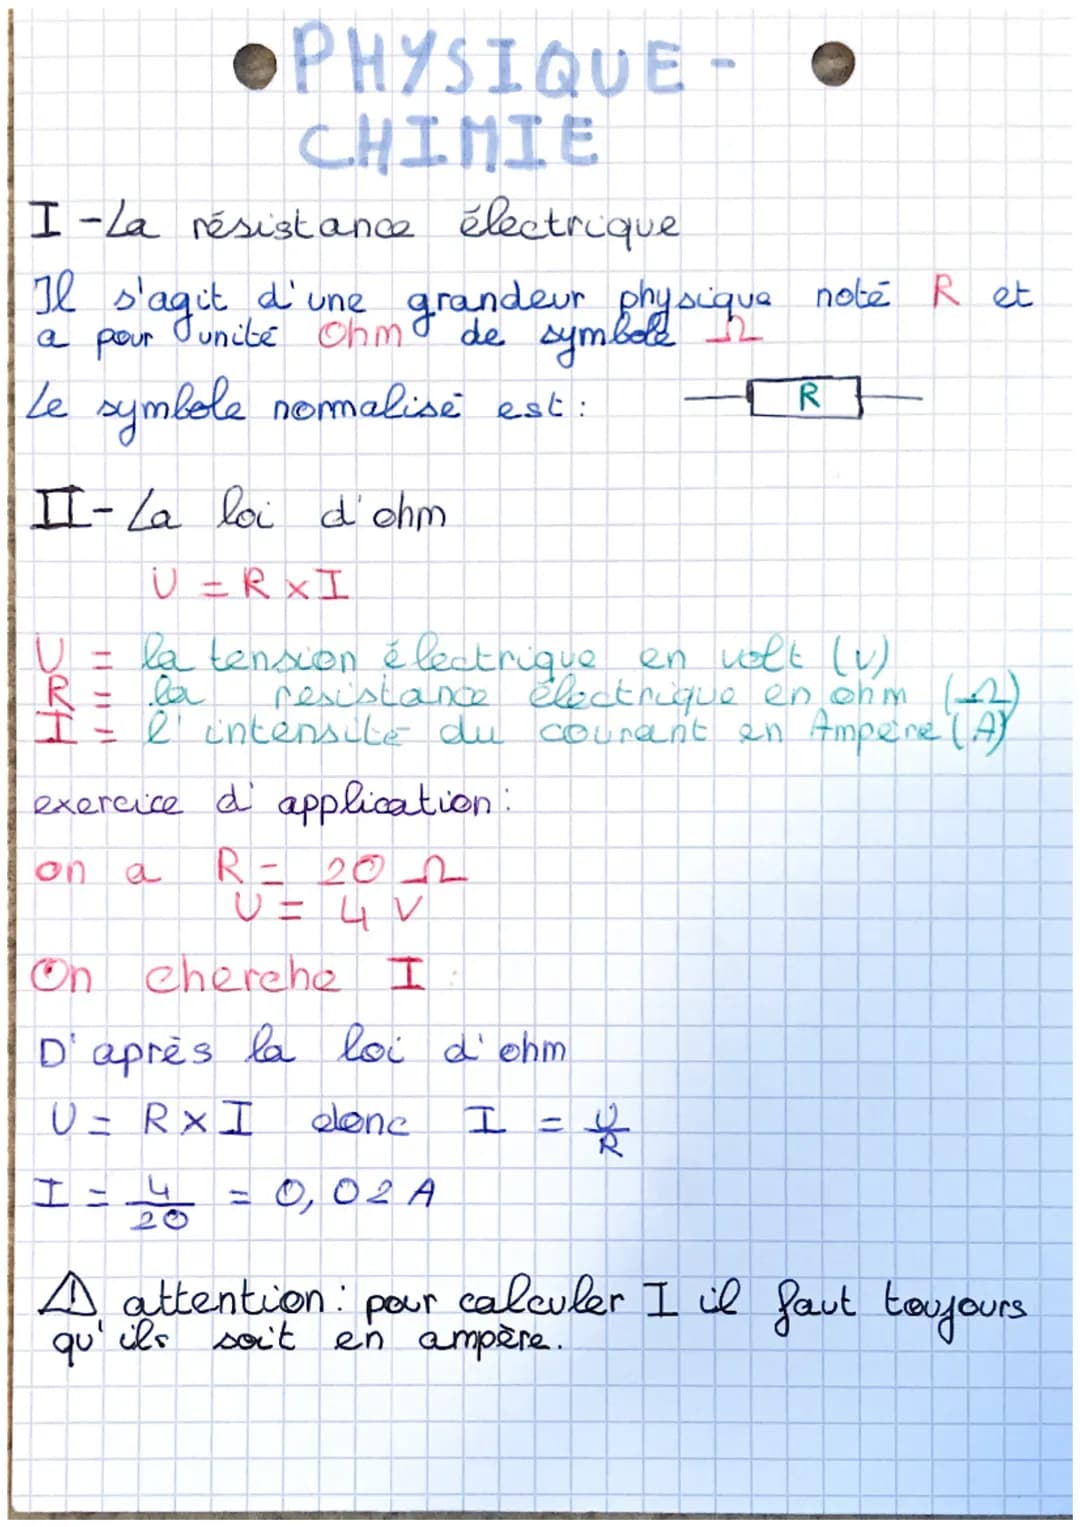 PHYSIQUE-
CHIMIE
I-La résistance électrique
Il s'agit d'une grandeur physique noté R et
a pour unité Ohm de symbole Ω
Le symbole normalisé est :
R
II-La loi d'ohm
U = R x I
U = la tension électrique en volt (v)
R = la resistance électrique en ohm (Ω)
I = l'intensité du courant en Ampère (A)
exercice d'application :
on a R = 20 Ω
U = 4 V
On cherche I :
D'après la loi d'ohm
U = R x I donc I = U/R
I = 4/20 = 0,02 A
⚠ attention : pour calculer I il faut toujours
qu'ils soit en ampère.